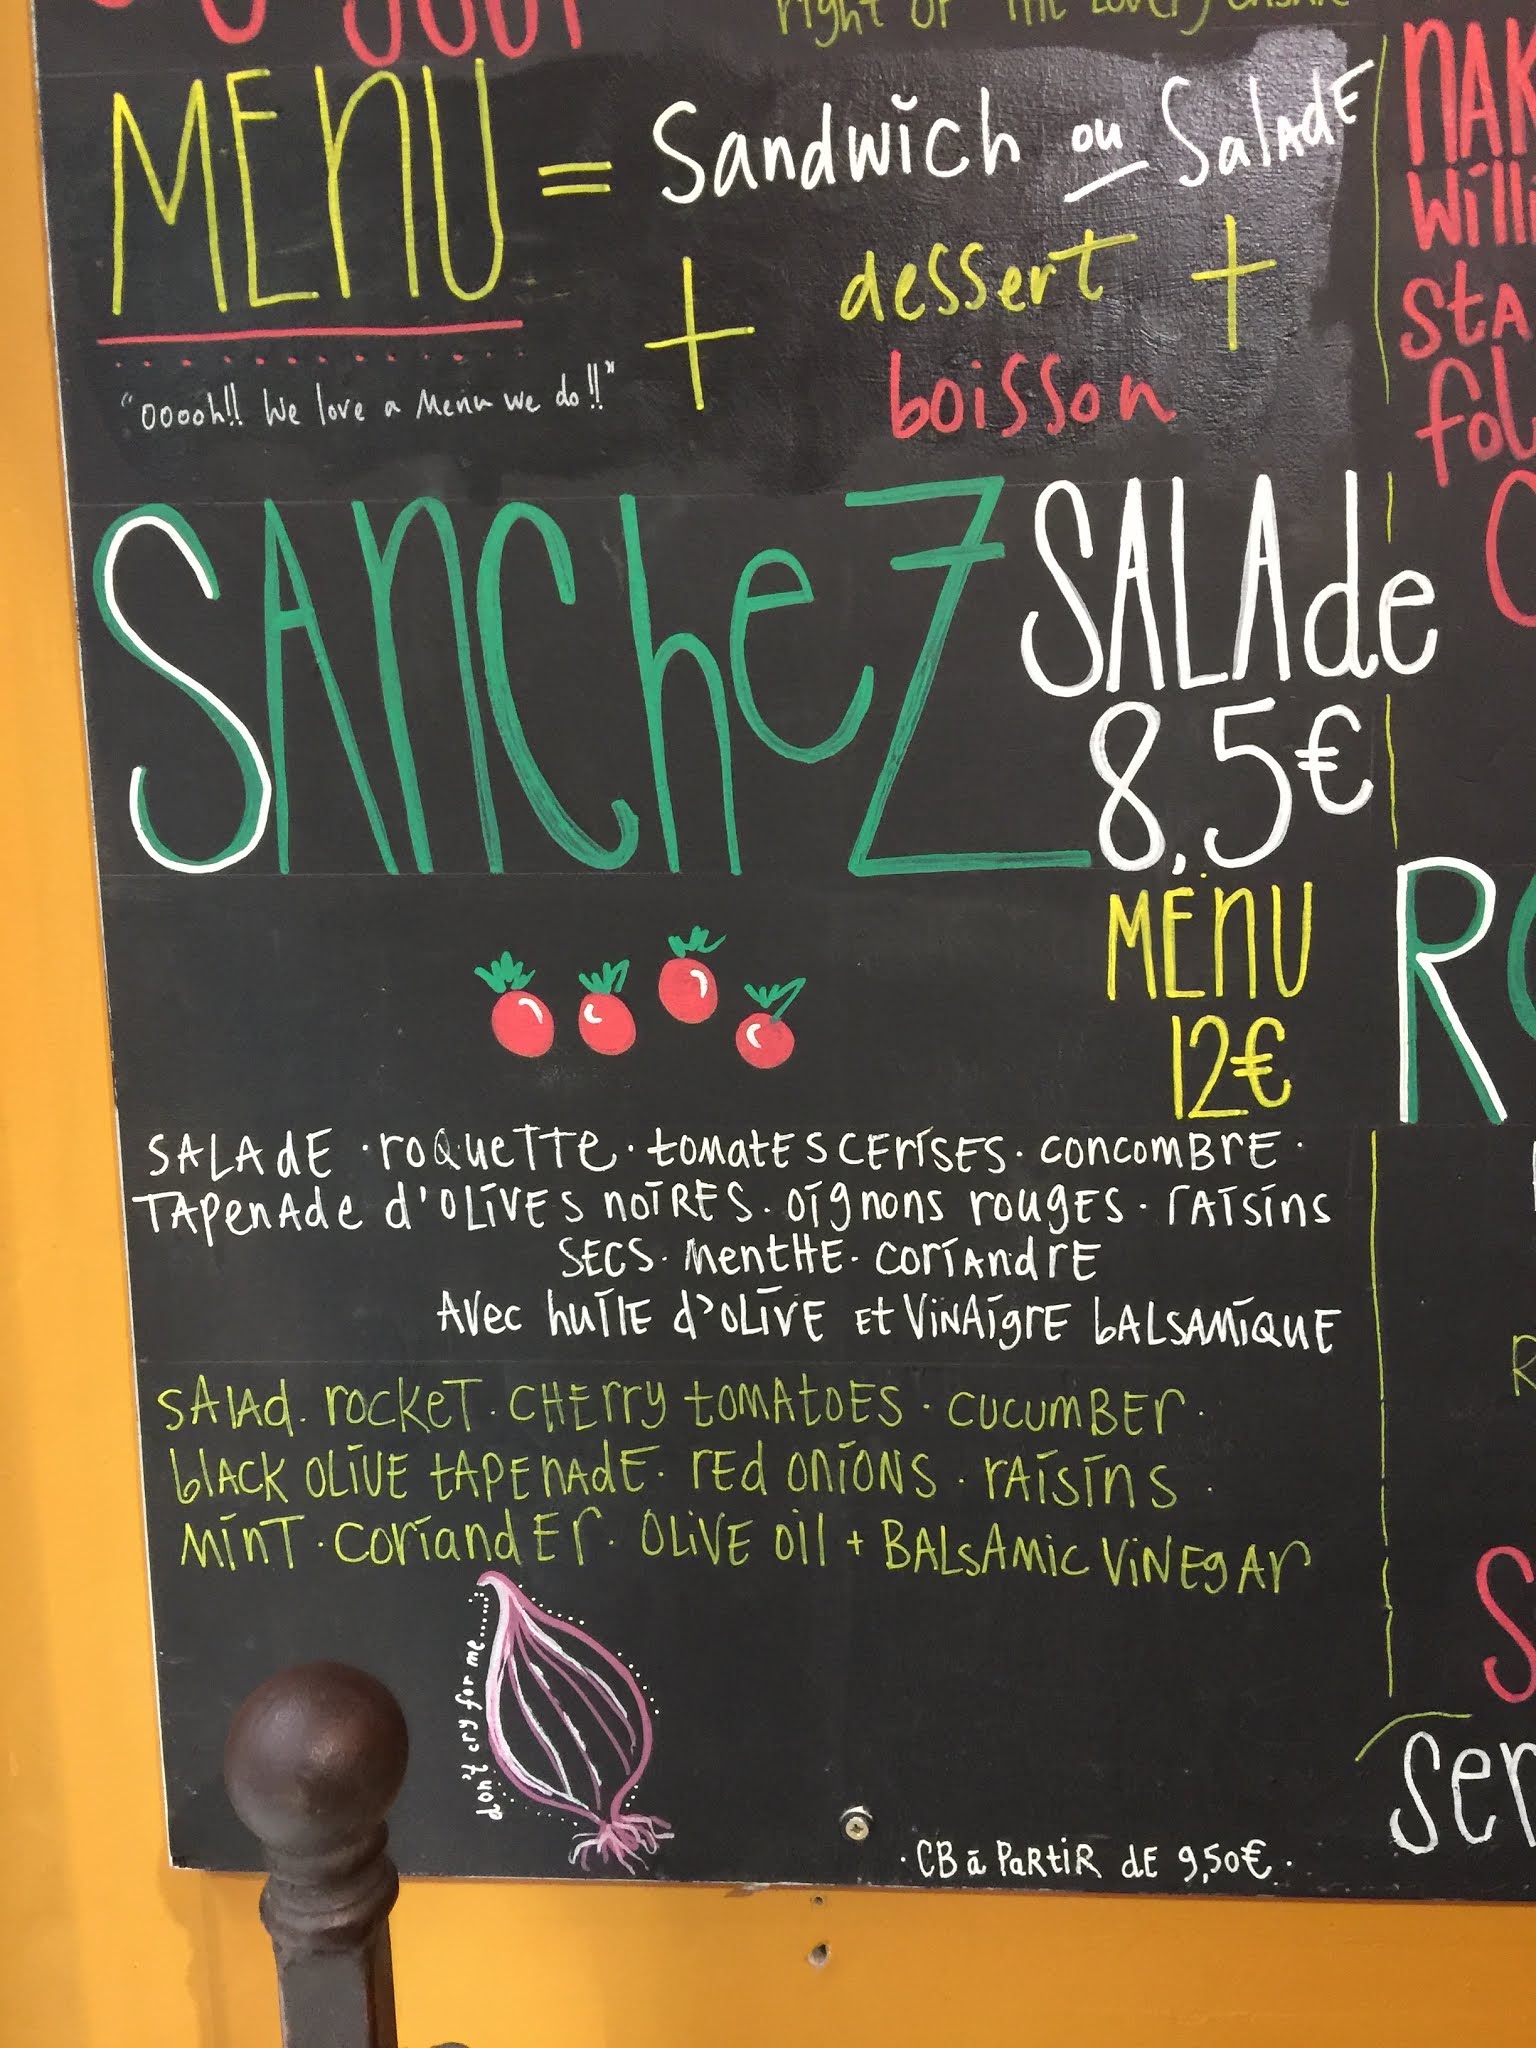 right of
MENU = Sandwich ou Salade
+ dessert +
boisson
"OOOOh!! We love a Menu we do!!"
SANCHEZ SALAde
8,5€
MENU
12€
SALAdE · roquETTe · tomatES CErISES · concomBrE ·
TAPenAde d'OLIVEs noIRES · oIgnons rougES · rAIsIns
SECS · MentHE · corIAndrE
AVec huIlE d'OLIVE Et VINAIgrE bALSAMIQUE
SALAd · rocKeT · CHErry tomAtoES · CUCUmBEr ·
blACK OLIVE tAPEnAdE · rEd onIONS · rAIsIns ·
MINT · corIandEr · OLIVE OIl + BALSAMIC VINEgAr
Don't cry for me......
· CB à PaRtiR dE 9,50€ ·
NAK
Willi
StA
fol
R
S
Ser